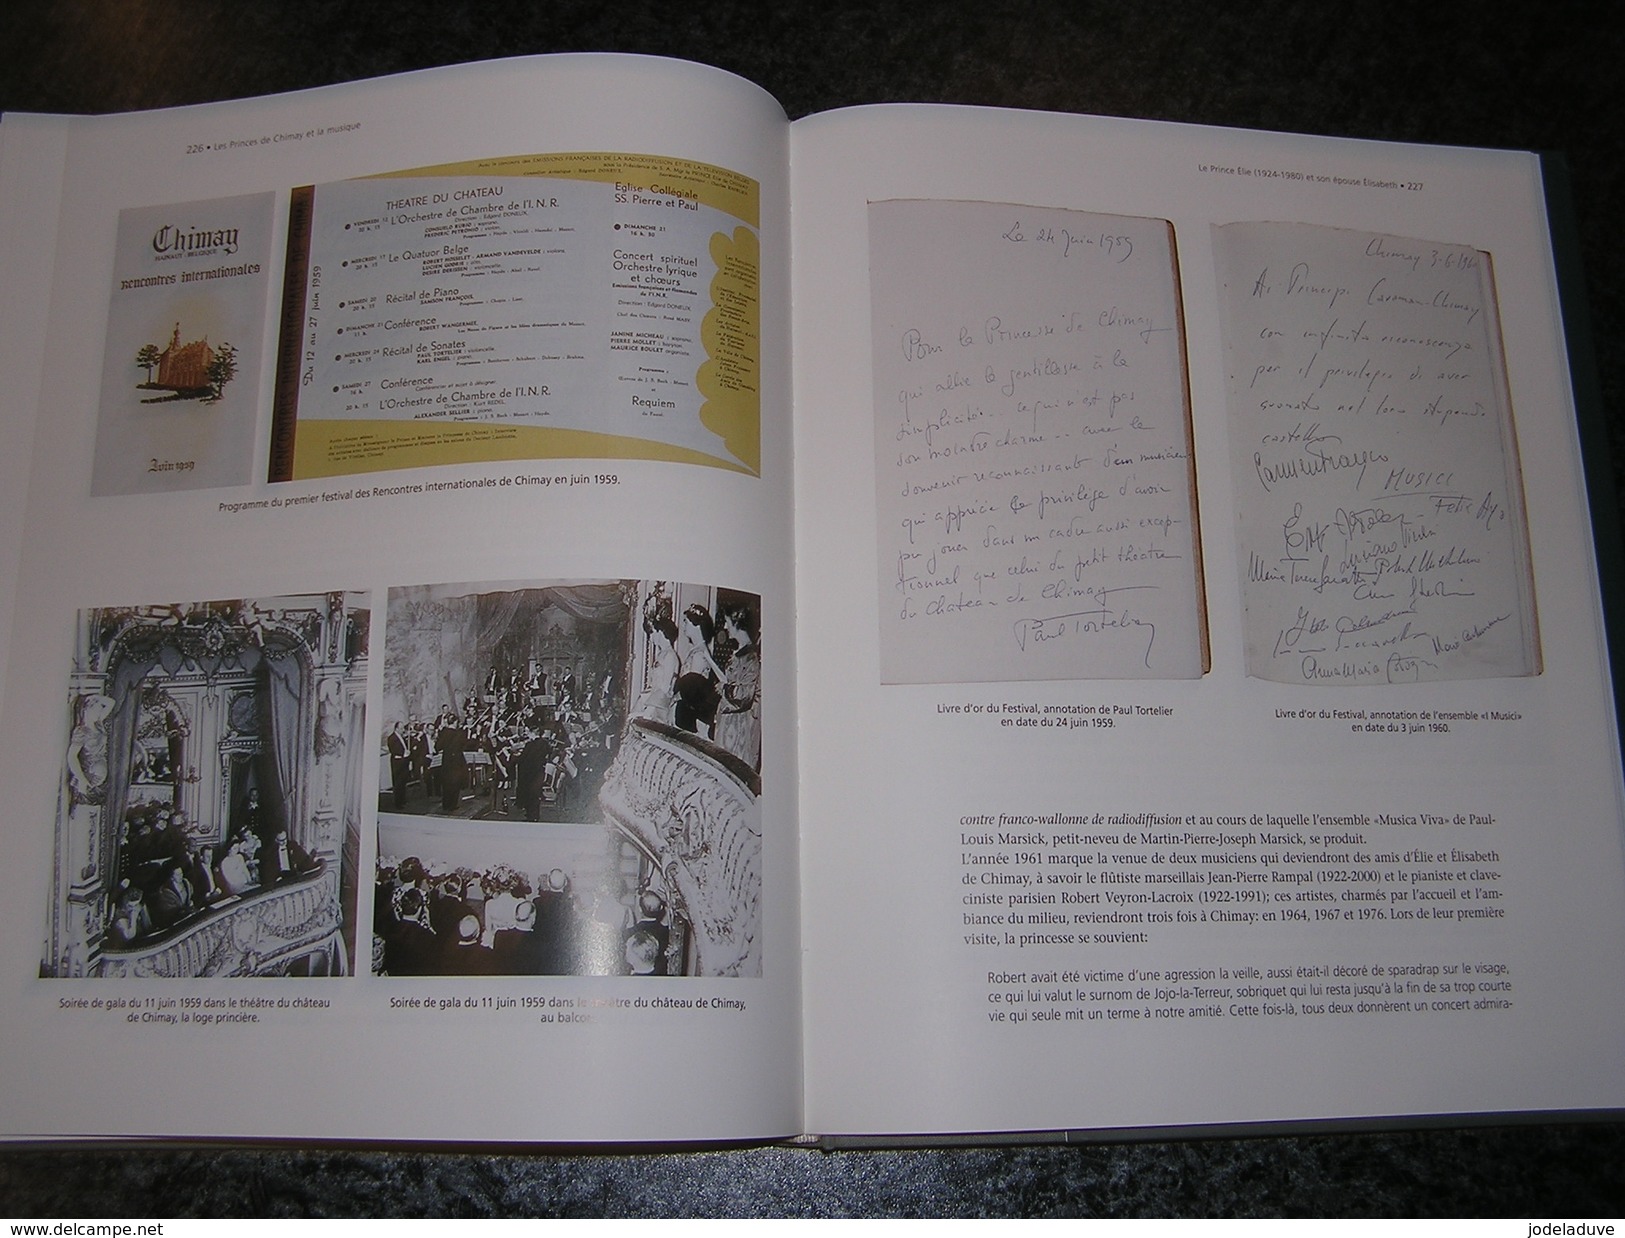 226 • Les Princes de Chimay et la musique
Chimay
HAINAUT - BELGIQUE
Rencontres internationales
Juin 1959
Du 12 au 27 juin 1959
THEATRE DU CHATEAU
VENDREDI 12
20 h. 15
L'Orchestre de Chambre de l'I. N. R.
Direction : Edgard DONEUX,
CONSUELO RUBIO ; soprano,
MERCREDI 17
20 h. 15
Le Quatuor Belge
DESIRE DERISSEN : violoncelle.
SAMEDI 20
20 h. 15
Récital de Piano
SAMSON FRANÇOIS.
DIMANCHE 21
11 h.
Conférence
ROBERT WANGERMEE,
MERCREDI 24
20 h. 15
Récital de Sonates
PAUL TORTELIER : violoncelle,
KARL ENGEL : piano.
SAMEDI 27
16 h.
Conférence
20 h. 15
L'Orchestre de Chambre de l'I. N. R.
Direction : Kurt REDEL.
ALEXANDER SELLIER : piano.
Eglise Collégiale
SS. Pierre et Paul
DIMANCHE 21
16 h. 30
Concert spirituel
Orchestre lyrique
et chœurs
de l'I.N.R.
Direction : Edgard DONEUX
JANINE MICHEAU : soprano,
PIERRE MOLLET : baryton,
MAURICE BOULET organiste
Programme :
Requiem
de Fauré.
Programme du premier festival des Rencontres internationales de Chimay en juin 1959.
Soirée de gala du 11 juin 1959 dans le théâtre du château
de Chimay, la loge princière.
Soirée de gala du 11 juin 1959 dans le théâtre du château de Chimay,
au balcon.
Le Prince Élie (1924-1980) et son épouse Élisabeth • 227
Le 24 juin 1959
Pour la Princesse de Chimay
qui allie la gentillesse à la
simplicité... ce qui n'est pas
son moindre charme... avec le
souvenir reconnaissant d'un musicien
qui apprécie le privilège d'avoir
pu jouer dans un cadre aussi excep-
tionnel que celui du petit théâtre
du Château de Chimay
Paul Tortelier
Livre d'or du Festival, annotation de Paul Tortelier
en date du 24 juin 1959.
Chimay 3-6-1960
Ai Principi Caraman-Chimay
con infinita riconoscenza
per il privilegio di aver
suonato nel loro stupendo
castello
MUSICI
Felix Ayo
Livre d'or du Festival, annotation de l'ensemble «I Musici»
en date du 3 juin 1960.
contre franco-wallonne de radiodiffusion et au cours de laquelle l'ensemble «Musica Viva» de Paul-
Louis Marsick, petit-neveu de Martin-Pierre-Joseph Marsick, se produit.
L'année 1961 marque la venue de deux musiciens qui deviendront des amis d'Élie et Élisabeth
de Chimay, à savoir le flûtiste marseillais Jean-Pierre Rampal (1922-2000) et le pianiste et clave-
ciniste parisien Robert Veyron-Lacroix (1922-1991); ces artistes, charmés par l'accueil et l'am-
biance du milieu, reviendront trois fois à Chimay: en 1964, 1967 et 1976. Lors de leur première
visite, la princesse se souvient:
Robert avait été victime d'une agression la veille, aussi était-il décoré de sparadrap sur le visage,
ce qui lui valut le surnom de Jojo-la-Terreur, sobriquet qui lui resta jusqu'à la fin de sa trop courte
vie qui seule mit un terme à notre amitié. Cette fois-là, tous deux donnèrent un concert admira-
www.delcampe.net
jodeladuve